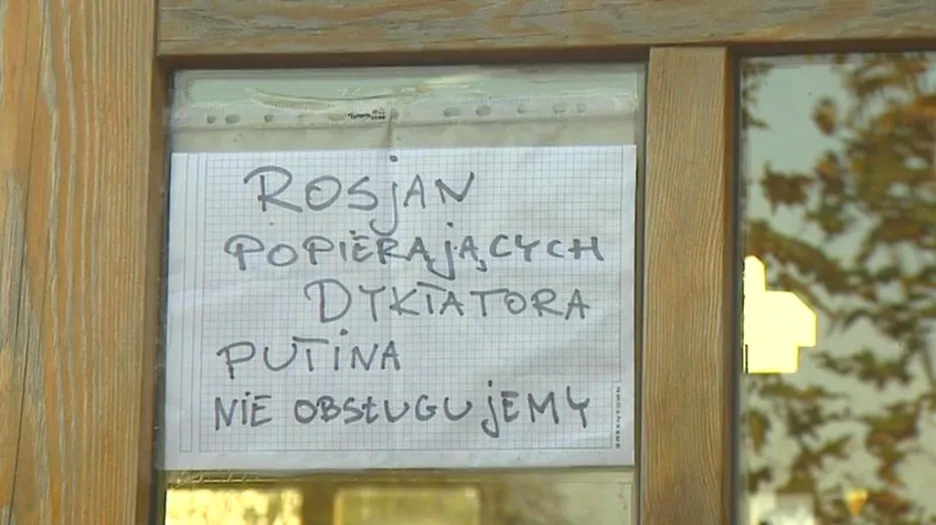 ROSjAN
POPIERAjĄCYCH
DYKTATORA
PUTiNA
NiE OBSŁUGUjEMY